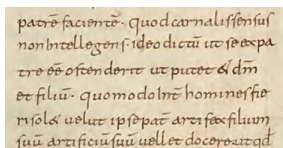 patrē facientē · quod carnalis sensus
non intellegens · ideo dictū ut se ex pa
tre eē ostenderit ut putet & dm̄
et filiū · quomodo int̄ homines fie
ri sol& velut ipse pat̄ artifex filium
suū artificiū suū vellet docere ut qđ